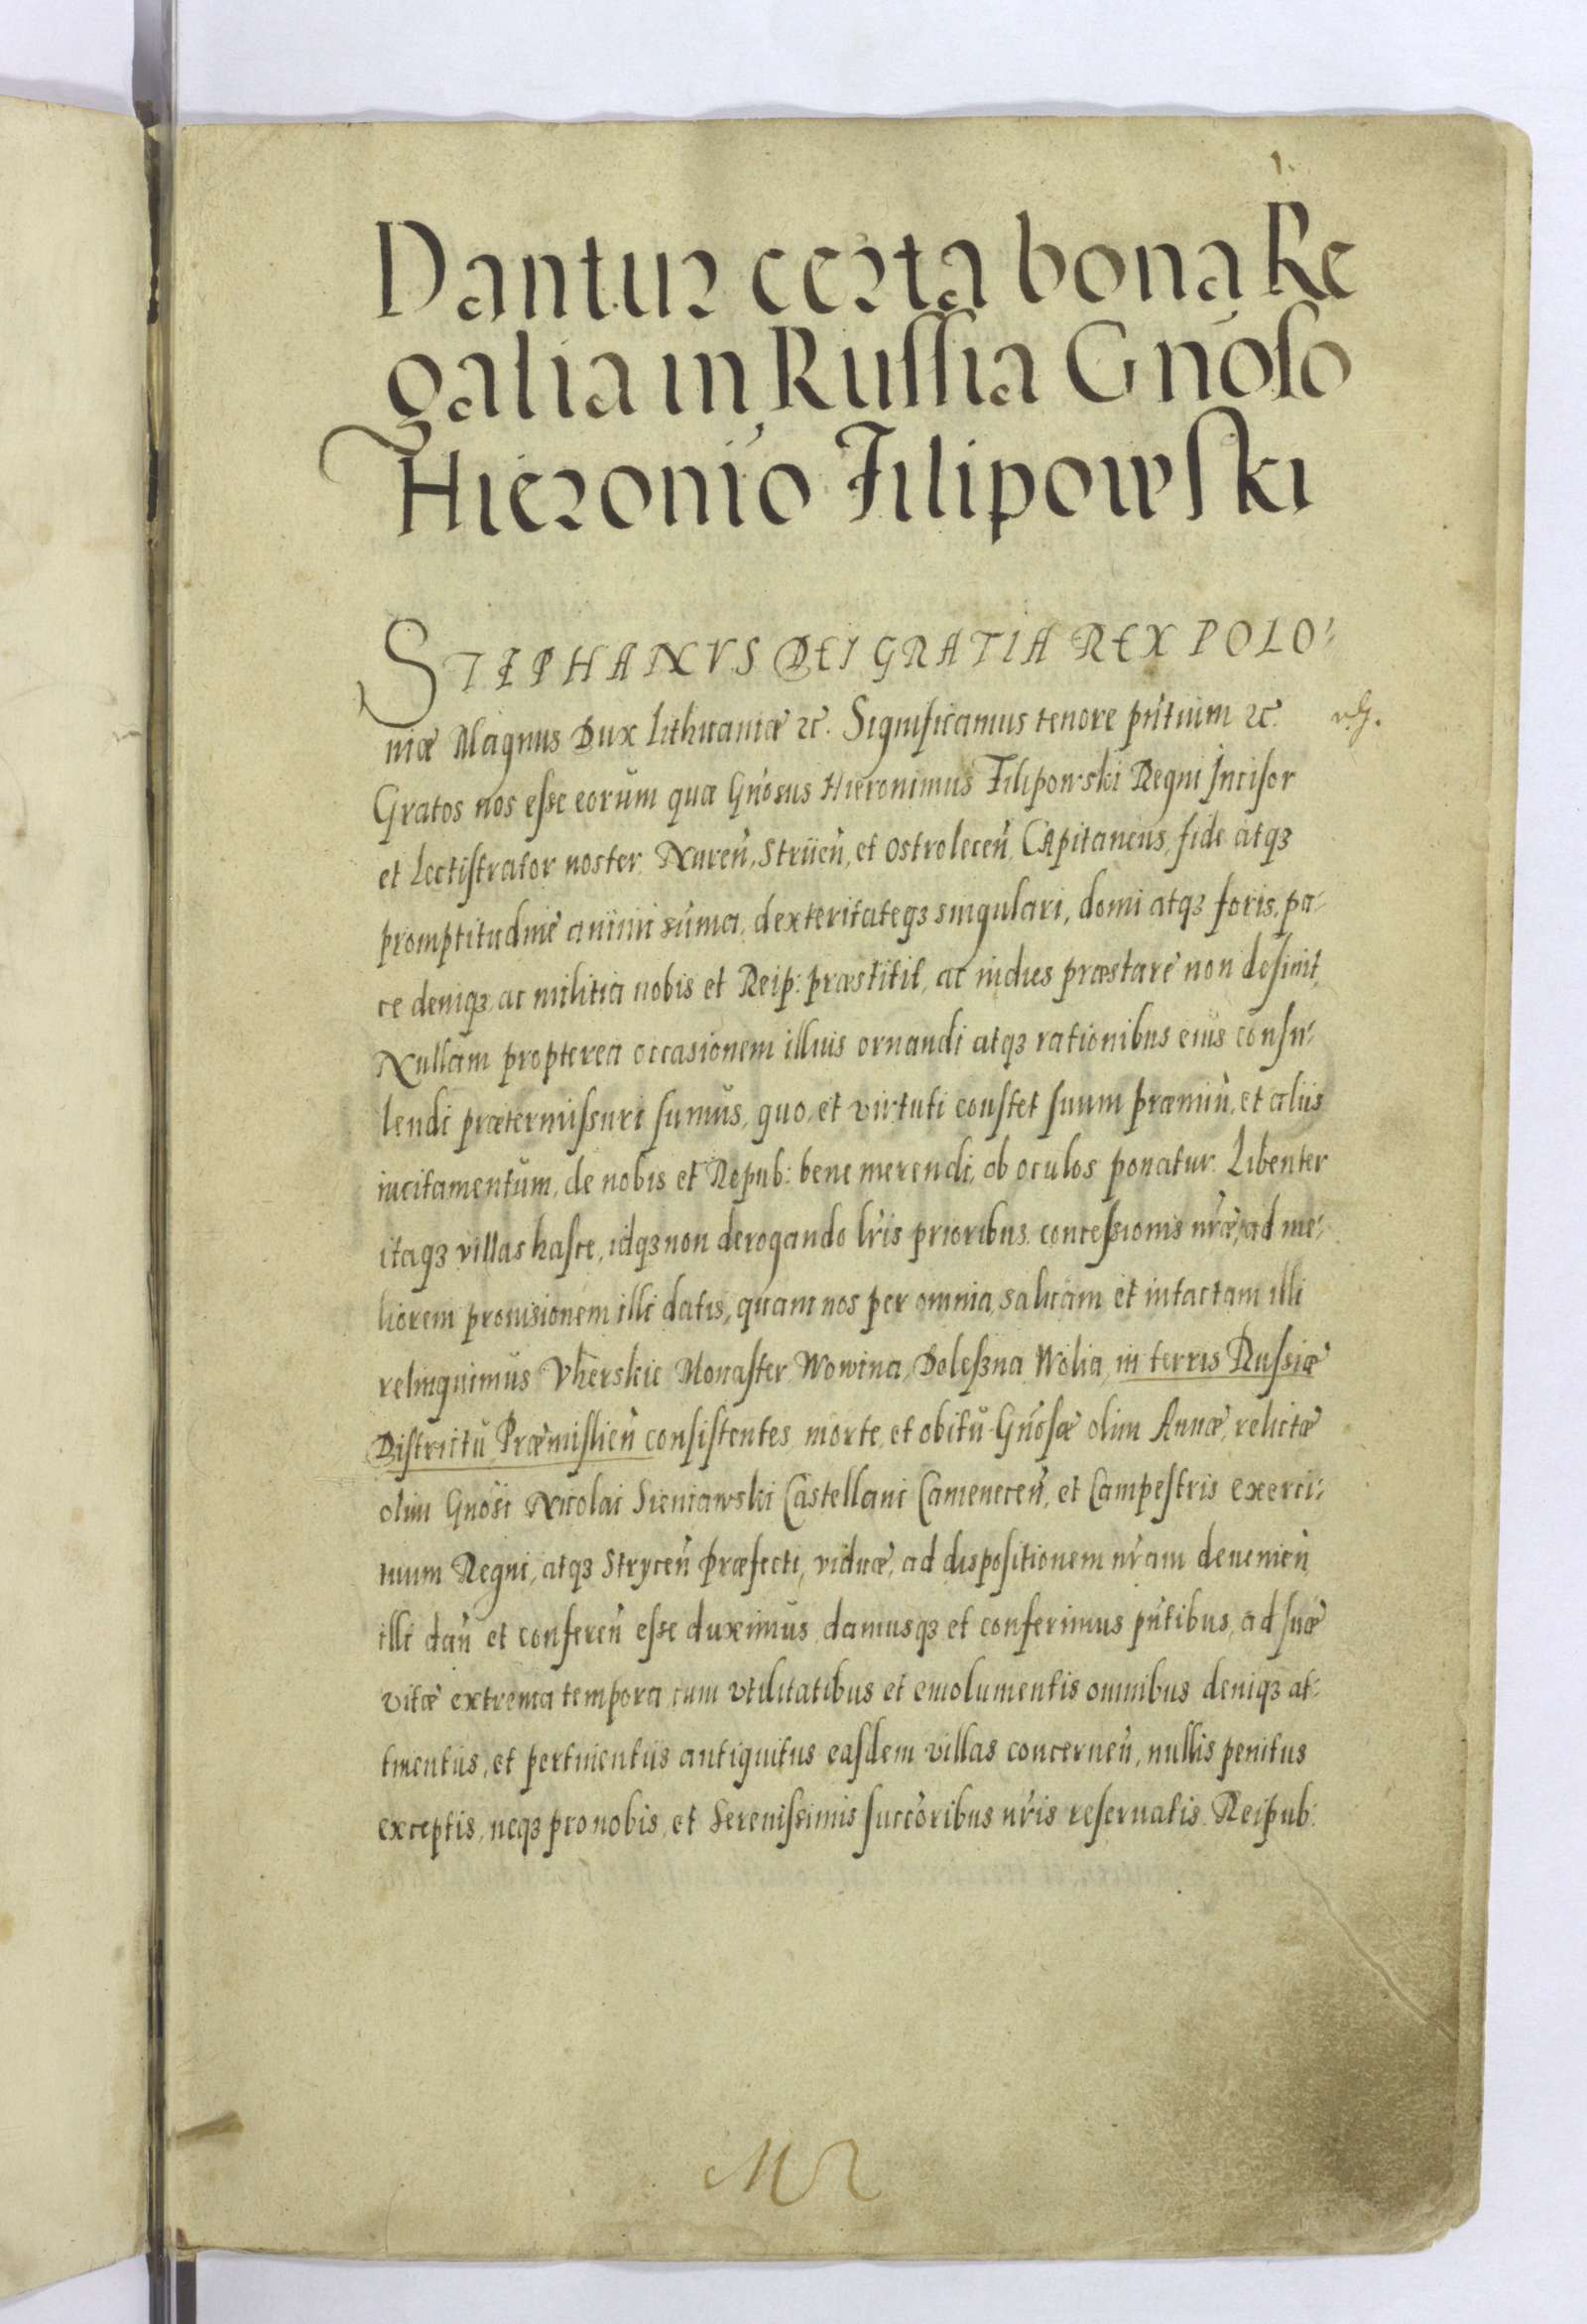 1.
Dantur certa bona Re
galia in Russia Gnoso
Hieronio Filipowski
STEPHANVS DEI GRATIA REX POLO:
niæ Magnus Dux Lithuaniæ ꝛc. Significamus tenore pñtium ꝛc.
Gratos nos esse eorum quæ Gnosus Hieronimus Filipowski Regni Incisor
et Lectistrator noster, Nureñ, Striieñ, et Ostroleceñ, Capitaneus, fide atqꝫ
promptitudine animi sūma, dexteritateqꝫ singulari, domi atqꝫ foris, pa:
ce deniqꝫ, ac militia nobis et Reip: præstitit, ac indies præstare non desinit,
Nullam propterea occasionem illius ornandi atqꝫ rationibus eius consu:
lendi prætermissuri sumus, quo, et virtuti constet suum præmiũ, et aliis
incitamentum, de nobis et Repub: bene merendi, ob oculos ponatur. Libenter
itaqꝫ villas hasce, idqꝫ non derogando lr̃is prioribus concessionis nr̃æ, ad me:
liorem prouisionem illi datis, quam nos per omnia, saluam et intactam illi
relinquimus Vherskie Monaster Wowina, Doleszna Wolia, in terris Russiæ
Districtũ Præmislieñ consistentes, morte, et obitũ Gnosæ olim Annæ, relictæ
olim Gnosi Nicolai Sieniawski Castellani Cameneceñ, et Campestris exerci:
tuum Regni, atqꝫ Stryceñ Præfecti, viduæ, ad dispositionem nr̃am deuenieñ
illi dañ et confereñ esse duximus, damusqꝫ et conferimus pñtibus, ad suæ
vitæ extrema tempora, cum vtilitatibus et emolumentis omnibus deniqꝫ at:
tinentiis, et pertinentiis antiquitus easdem villas concerneñ, nullis penitus
exceptis, neqꝫ pro nobis, et Serenissimis succoribus nr̃is reseruatis. Reipub: